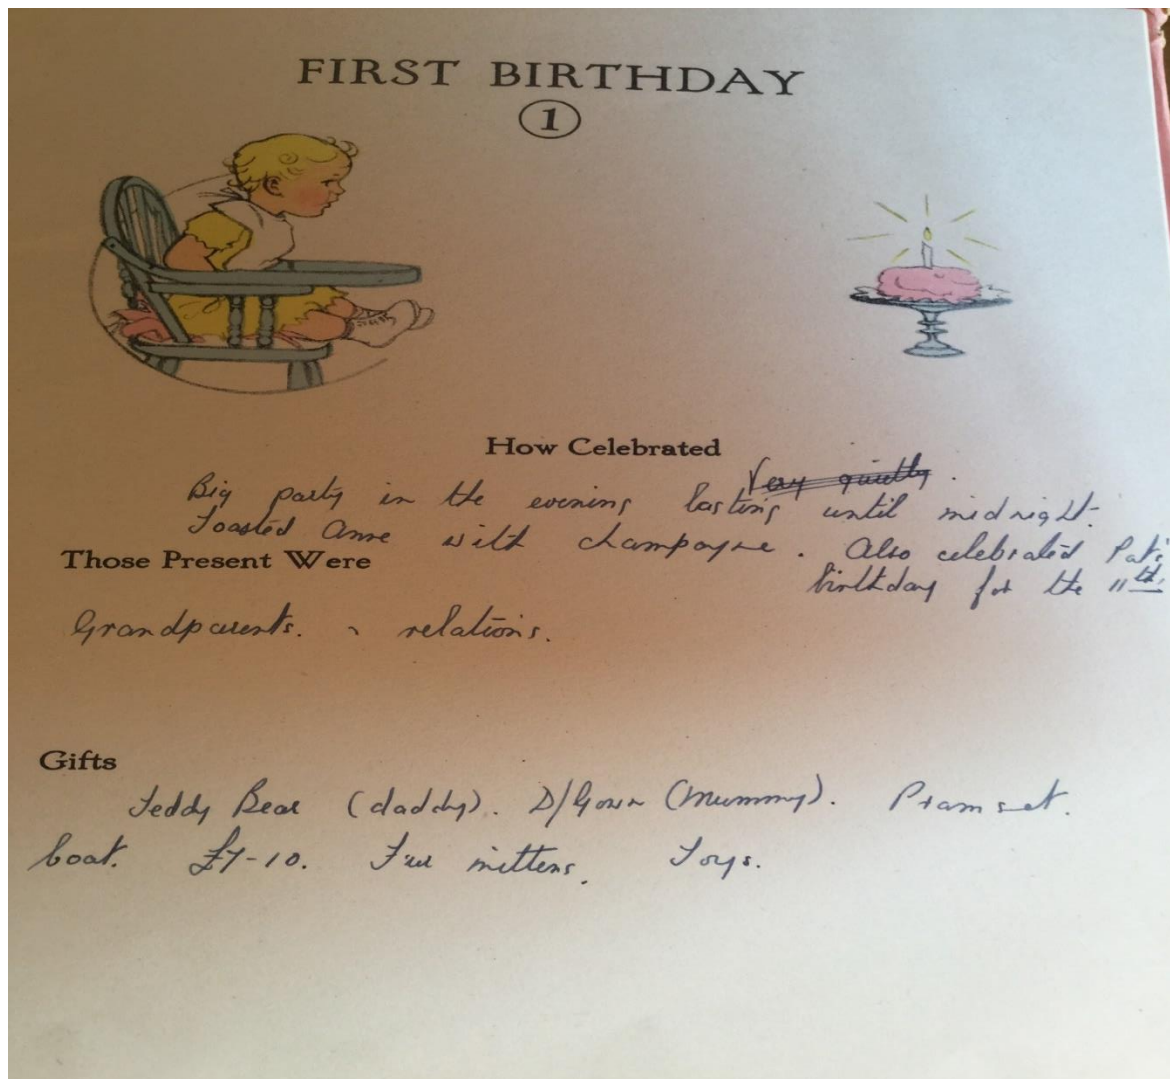 FIRST BIRTHDAY
1
How Celebrated
Very quietly.
Big party in the evening lasting until midnight.
Toasted Anne with champagne. Also celebrated Pat's
birthday for the 11th.
Those Present Were
Grandparents. & relations.
Gifts
Teddy Bear (daddy). D/Gown (Mummy). Pram set.
boat. £7-10. Fur mittens. Toys.